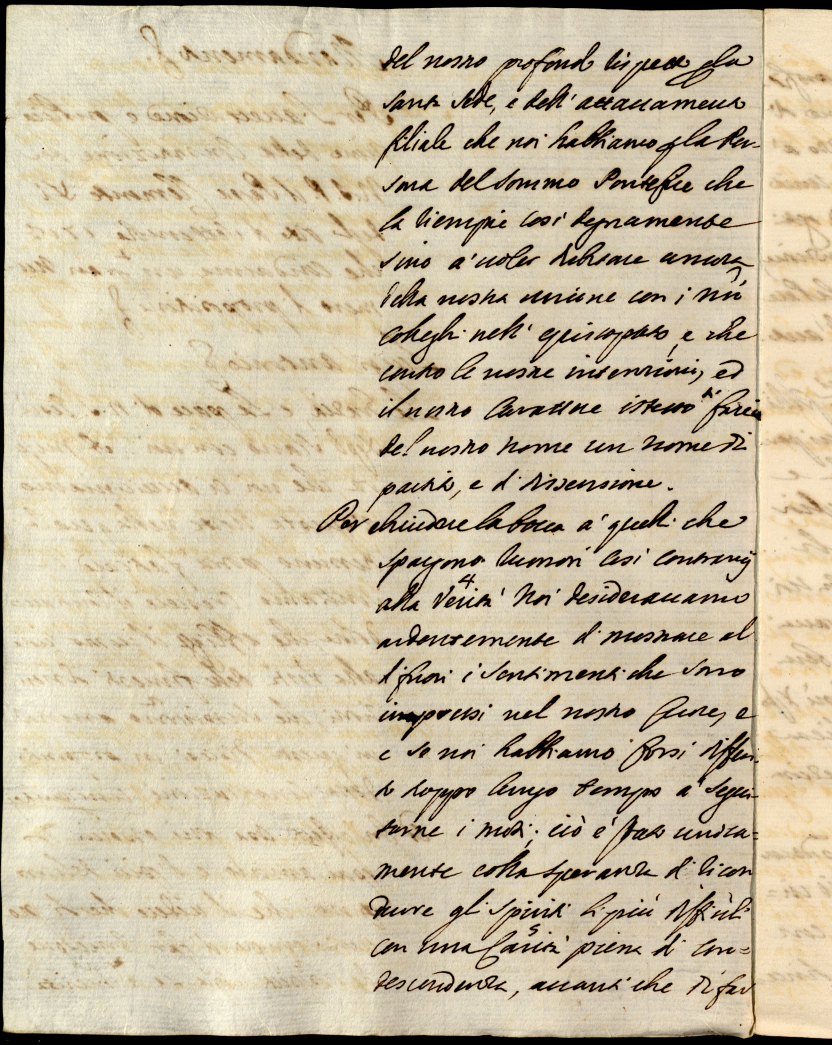 del nostro profondo rispetto p la
Santa Sede, e dell' attaccamento
filiale che noi habbiamo p la Per-
sona del Sommo Pontefice che
la riempie così degnamente
sino a' voler dubitare ancora
della nostra unione con i nri
Colleghi nell' episcopato, e che
contro le nostre intenzioni, ed
il nostro Carattere istesso si faccia
del nostro nome un nome di
partito, e di dissensione.
Per chiudere la bocca a' quelli che
spargono rumori così contrarij
alla Verità Noi desideravamo
ardentemente di mostrare al
di fuori i sentimenti che sono
impressi nel nostro Cuore, e
e se noi habbiamo forsi differi-
to troppo lungo tempo a' segui-
tarne i moti, ciò è stato unica=
mente colla speranza di ricon
durre gli spiriti li più difficili
con una Carità piena di con=
descendenza, avanti che di far